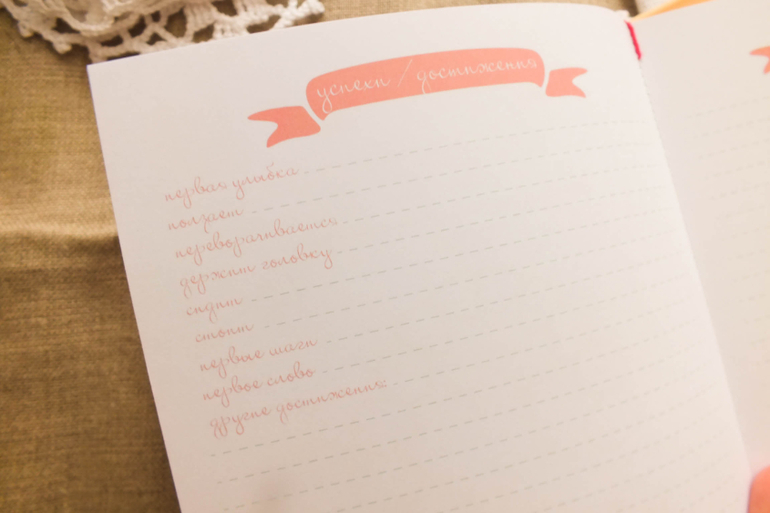 успехи / достижения
первая улыбка
ползает
переворачивается
держит головку
сидит
стоит
первые шаги
первое слово
другие достижения: